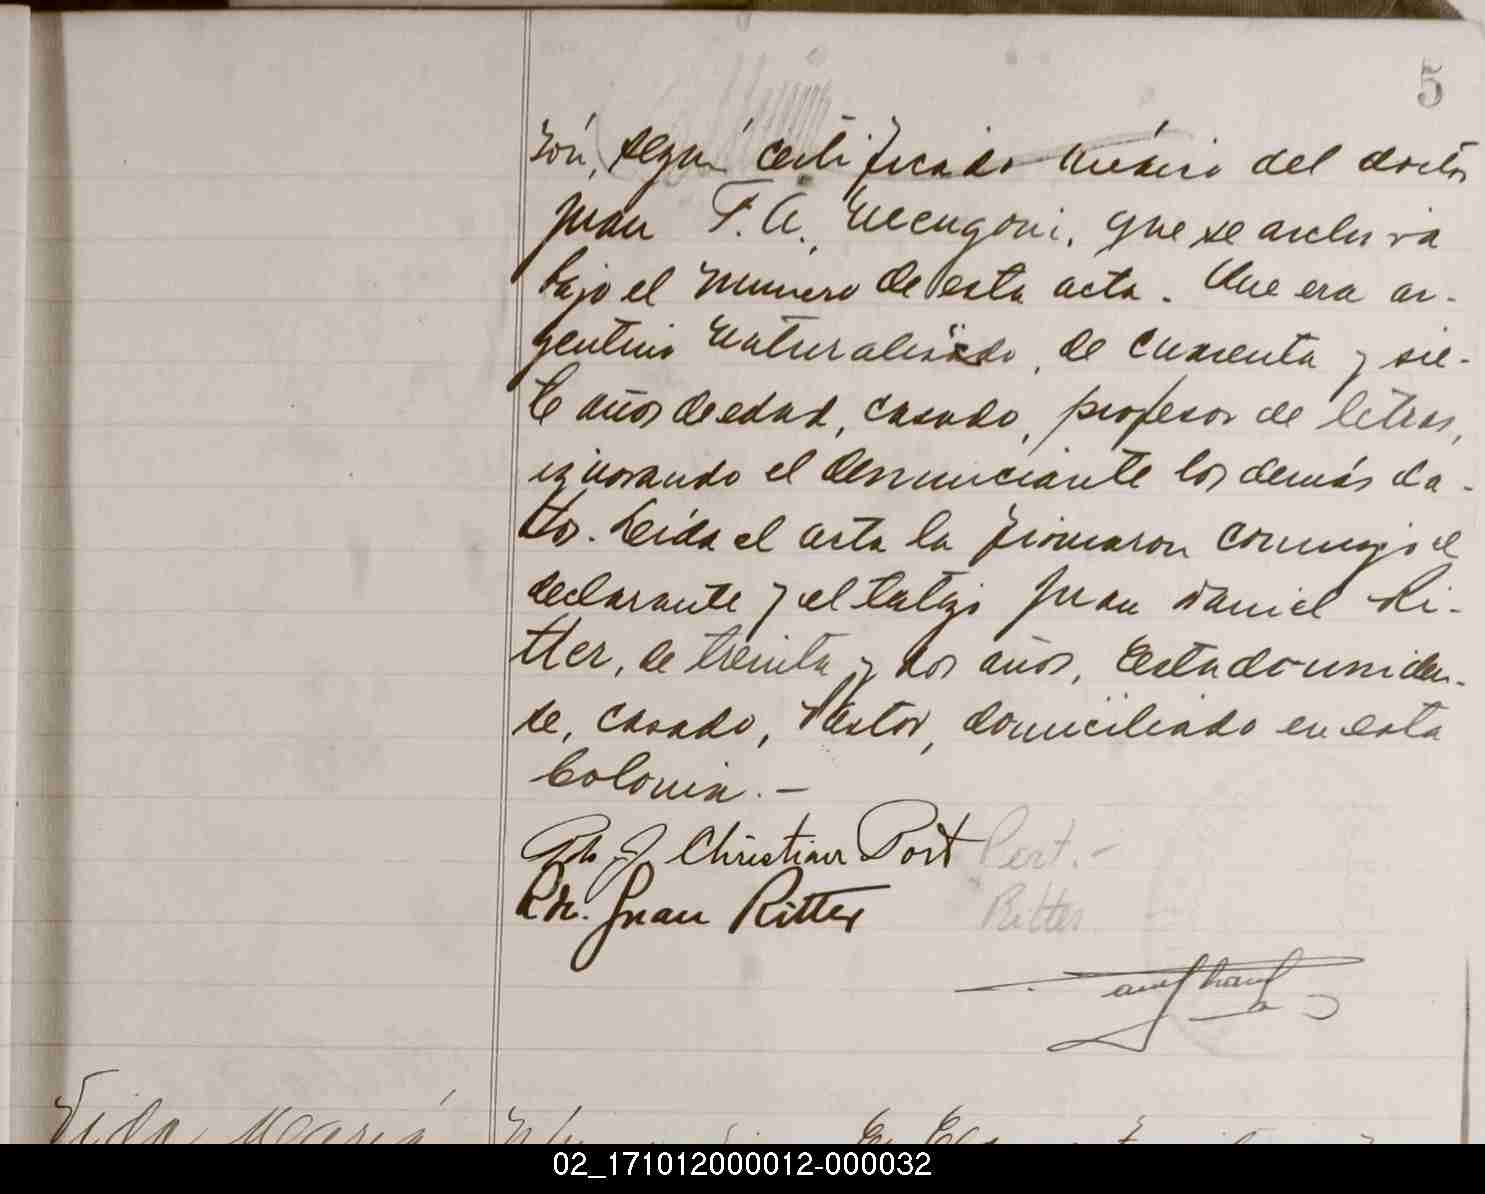 5
són, según certificado médico del doctor
Juan F. A. que se archiva
bajo el número de esta acta. Que era ar-
gentino naturalizado, de cuarenta y sie-
te años de edad, casado, profesor de letras,
ignorando el denunciante los demás da-
tos. Leída el acta la firmaron conmigo el
declarante y el testigo Juan Daniel Ri-
tter, de treinta y dos años, Estadouniden-
se, casado, Pastor, domiciliado en esta
Colonia.-
Christian Port Port.-
Rdo. Juan Ritter Ritter
Vida María
02_171012000012-000032